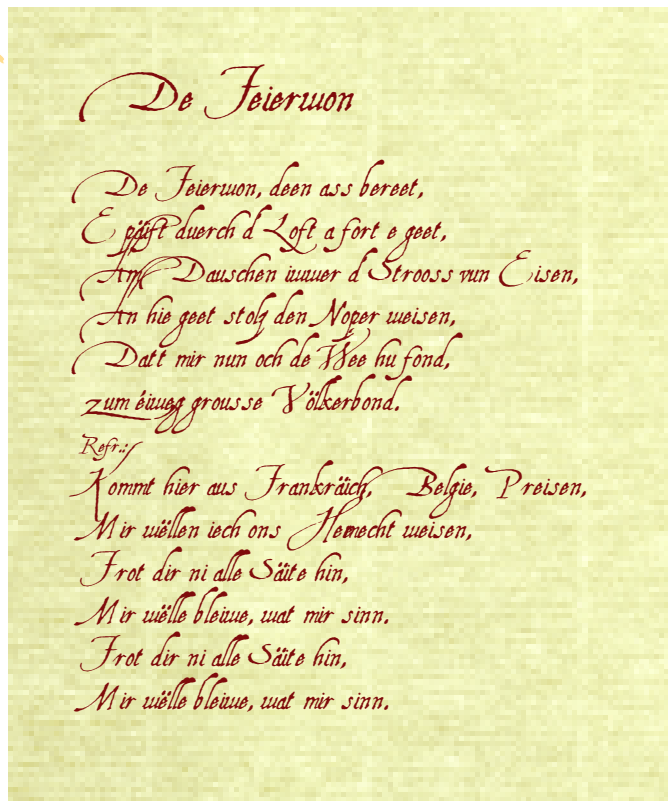 De Feierwon
De Feierwon, deen ass bereet,
E päift duerch d Loft a fort e geet,
Am Dauschen iwwer d Strooss vun Eisen,
An hie geet stolz den Noper weisen,
Datt mir nun och de Wee hu fond,
zum éiweg grousse Völkerbond.
Refr.:/
Kommt hier aus Frankräich, Belgie, Preisen,
Mir wëllen iech ons Hemecht weisen,
Frot dir ni alle Säite hin,
Mir wëlle bleiwe, wat mir sinn.
Frot dir ni alle Säite hin,
Mir wëlle bleiwe, wat mir sinn.